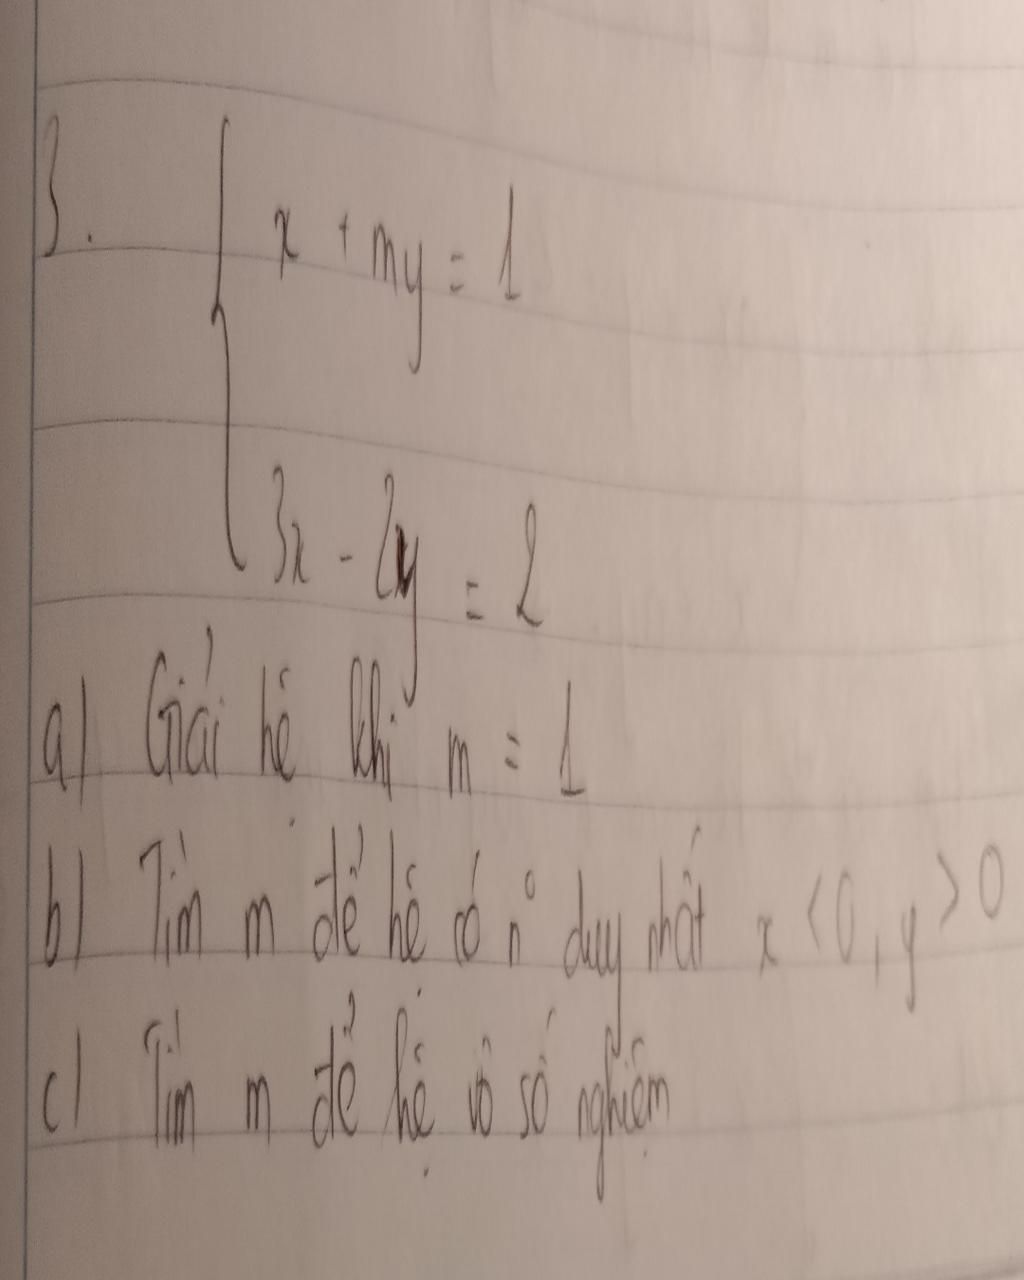 3. x + my = 1
3x - 2y = 2
a) Giải hệ khi m = 1
b) Tìm m để hệ có n° duy nhất x < 0, y > 0
c) Tìm m để hệ vô số nghiệm